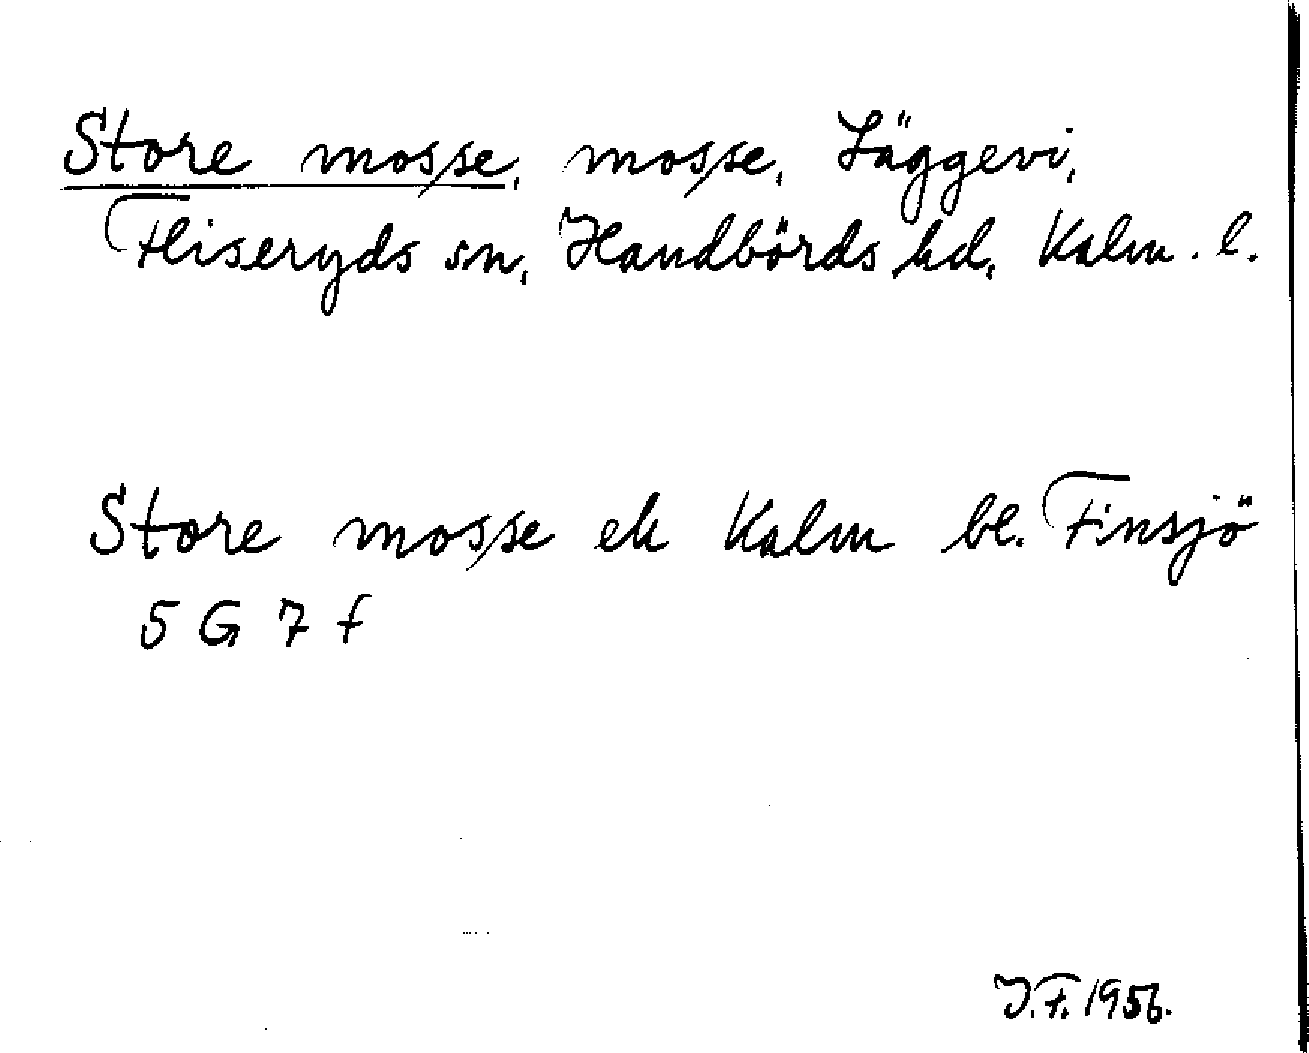 Store mosse, mosse, Läggevi,
Fliseryds sn, Handbörds hd, Kalm. l.
Store mosse ek Kalm bl. Finsjö
5 G 7 f
J.F. 1956.